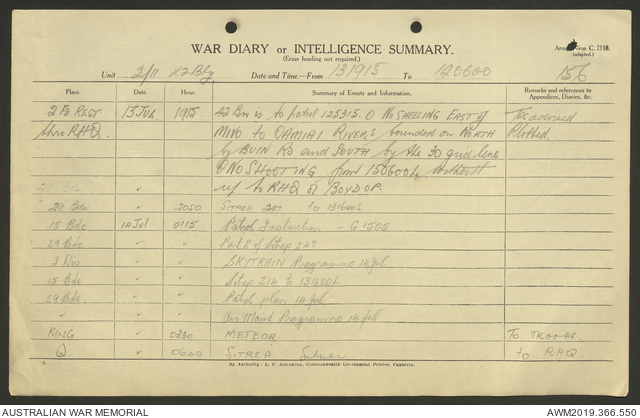 WAR DIARY or INTELLIGENCE SUMMARY.
(Erase heading not required.)
Army Form C. 2118.
(adapted.)
Unit 2/11 Date and Time—From 131915 To 140600 156
Place. Date. Hour. Summary of Events and Information. Remarks and references to Appendices, Diaries, &c.
2 Fd. REGT 13 JUL 1915 42 Bn is to patrol 125315. NO SHELLING EAST of Tx advised
thro RHQ. MIVO to OAMIAI RIVERS bounded on NORTH Plotted.
by BUIN RD and SOUTH by the 30 grid line
NO SHOOTING from 150600L
to RHQ & BOYD OP.
29 Bde ✓ 2050 SITREP to 131600L
15 Bde 14 Jul 0115 Patrol Instruction - G1505
29 Bde ✓ ✓ Part 2 of Sitrep 247
3 Div ✓ ✓ SKYTRAIN Programme 14 Jul
15 Bde ✓ ✓ Sitrep 214 to 131600L
29 Bde ✓ ✓ Patrol plan 14 Jul
✓ ✓ ✓ Air Maint Programme 14 Jul
KING ✓ 0330 METEOR To TROOPS.
Q ✓ 0600 SITREP to RHQ
By Authority: L. F. Johnston, Commonwealth Government Printer, Canberra.
AUSTRALIAN WAR MEMORIAL AWM2019.366.550